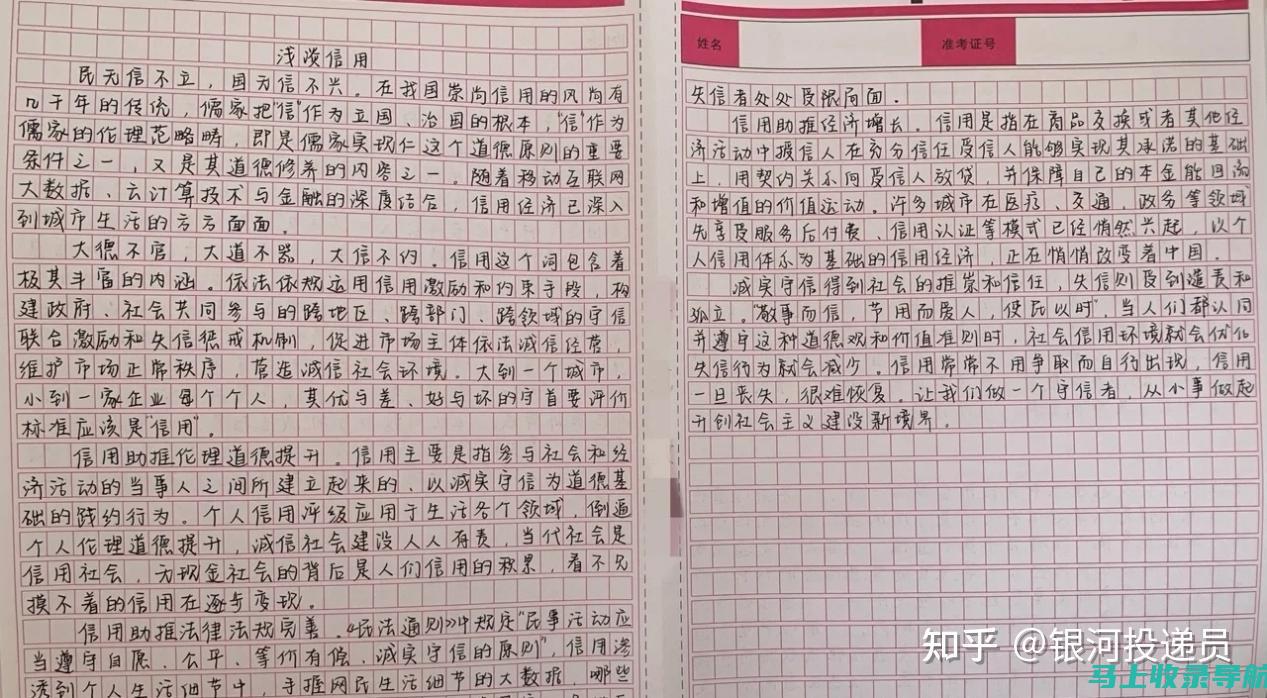 浅谈信用
民无信不立，国无信不兴。在我国崇尚信用的风尚有
几千年的传统，儒家把"信"作为立国、治国的根本，"信"作为
儒家的伦理范略畴，即是儒家实现仁这个道德原则的重要
条件之一，又是其道德修养的内容之一。随着移动互联网
大数据、云计算技术与金融的深度结合，信用经济已深入
到城市生活的方方面面。
大德不官，大道不器，大信不约。信用这个词包含着
极其丰富的内涵。依法依规运用信用激励和约束手段，构
建政府、社会共同参与的跨地区、跨部门、跨领域的守信
联合激励和失信惩戒机制，促进市场主体依法诚信经营，
维护市场正常秩序，营造诚信社会环境。大到一个城市，
小到一家企业每个个人，其优与差、好与坏的守首要评价
标准应该是"信用"。
信用助推伦理道德提升。信用主要是指参与社会和经
济活动的当事人之间所建立起来的、以诚实守信为道德基
础的践约行为。个人信用评级应用于生活各个领域，倒逼
个人伦理道德提升，诚信社会建设人人有责，当代社会是
信用社会，为现金社会的背后是人们信用的积累，看不见
摸不着的信用在逐步变现。
信用助推法律法规完善。《民法通则》中规定"民事活动应
当遵守自愿、公平、等价有偿、诚实守信的原则"，信用渗
透到个人生活细节中，手握网民生活细节的大数据，哪些
姓名
准考证号
失信者处处受限局面。
信用助推经济增长。信用是指在商品交换或者其他经
济活动中授信人在充分信任受信人能够实现其承诺的基础
上，用契约关系向受信人放贷，并保障自己的本金能回流
和增值的价值运动。许多城市在医疗、交通，政务等领域
先享受服务后付费、信用认证等模式已经悄然兴起，以个
人信用体系为基础的信用经济，正在悄悄改变着中国。
诚实守信得到社会的推崇和信任，失信则受到谴责和
孤立。"敬事而信，节用而爱人，使民以时"，当人们都认同
并遵守这种道德观和价值准则时，社会信用环境就会优化
失信行为就会减少。信用常常不用争取而自行出现，信用
一旦丧失，很难恢复。让我们做一个守信者，从小事做起
开创社会主义建设新境界。
知乎 @银河投递员
马上收录导航